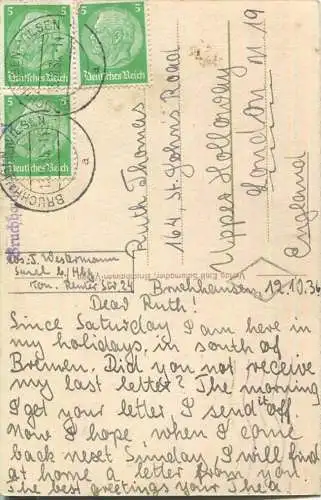 5
Deutsches Reich
5
Deutsches Reich
5
Deutsches Reich
BRUCHHAUSEN-VILSEN
a
Ruth Thomas
164, St. Johns Road
Upper Holloway
London N 19
England
Abs. J. Westermann
Fritz Reuter Str. 24
Bruchhausen, 12.10.36
Dear Ruth!
Since Saturday I am here in
my holidays, in south of
Bremen. Did you not receive
my last letter? The morning
I get your letter I send it off.
Now I hope, when I come
back next Sunday, I will find
at home a letter from you.
The best greetings your Thea